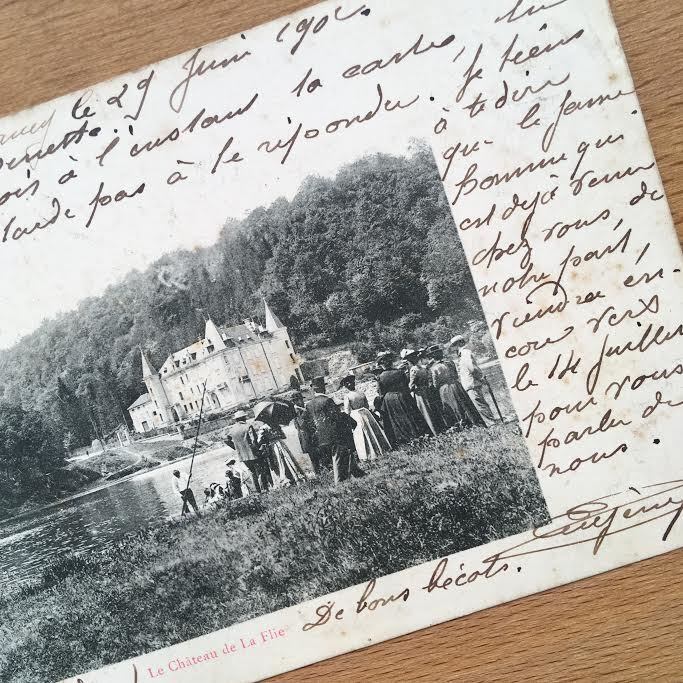 le 29 Juin 1902.
à l'instant ta carte, tu
tarde pas à te répondre. Je tiens
à te dire
que le jeune
homme qui
est déjà venu
chez vous, de
notre part,
viendra en-
core vers
le 14 Juillet
pour vous
parler de
nous.
Eugénie
De bons bécots.
Le Château de La Flie